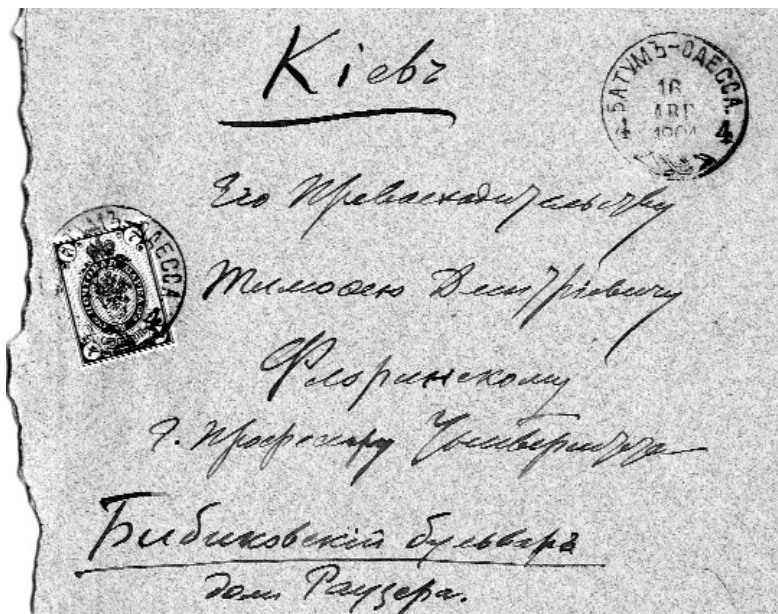 Кіевъ
БАТУМЪ-ОДЕССА.
16
АВГ
1901
4 4
Его Превосходительству
ОДЕССА
4
Тимоѳею Дмитріевичу
Флоринскому
Г. Профессору Университета
Бибиковскій бульваръ
домъ Раузера.